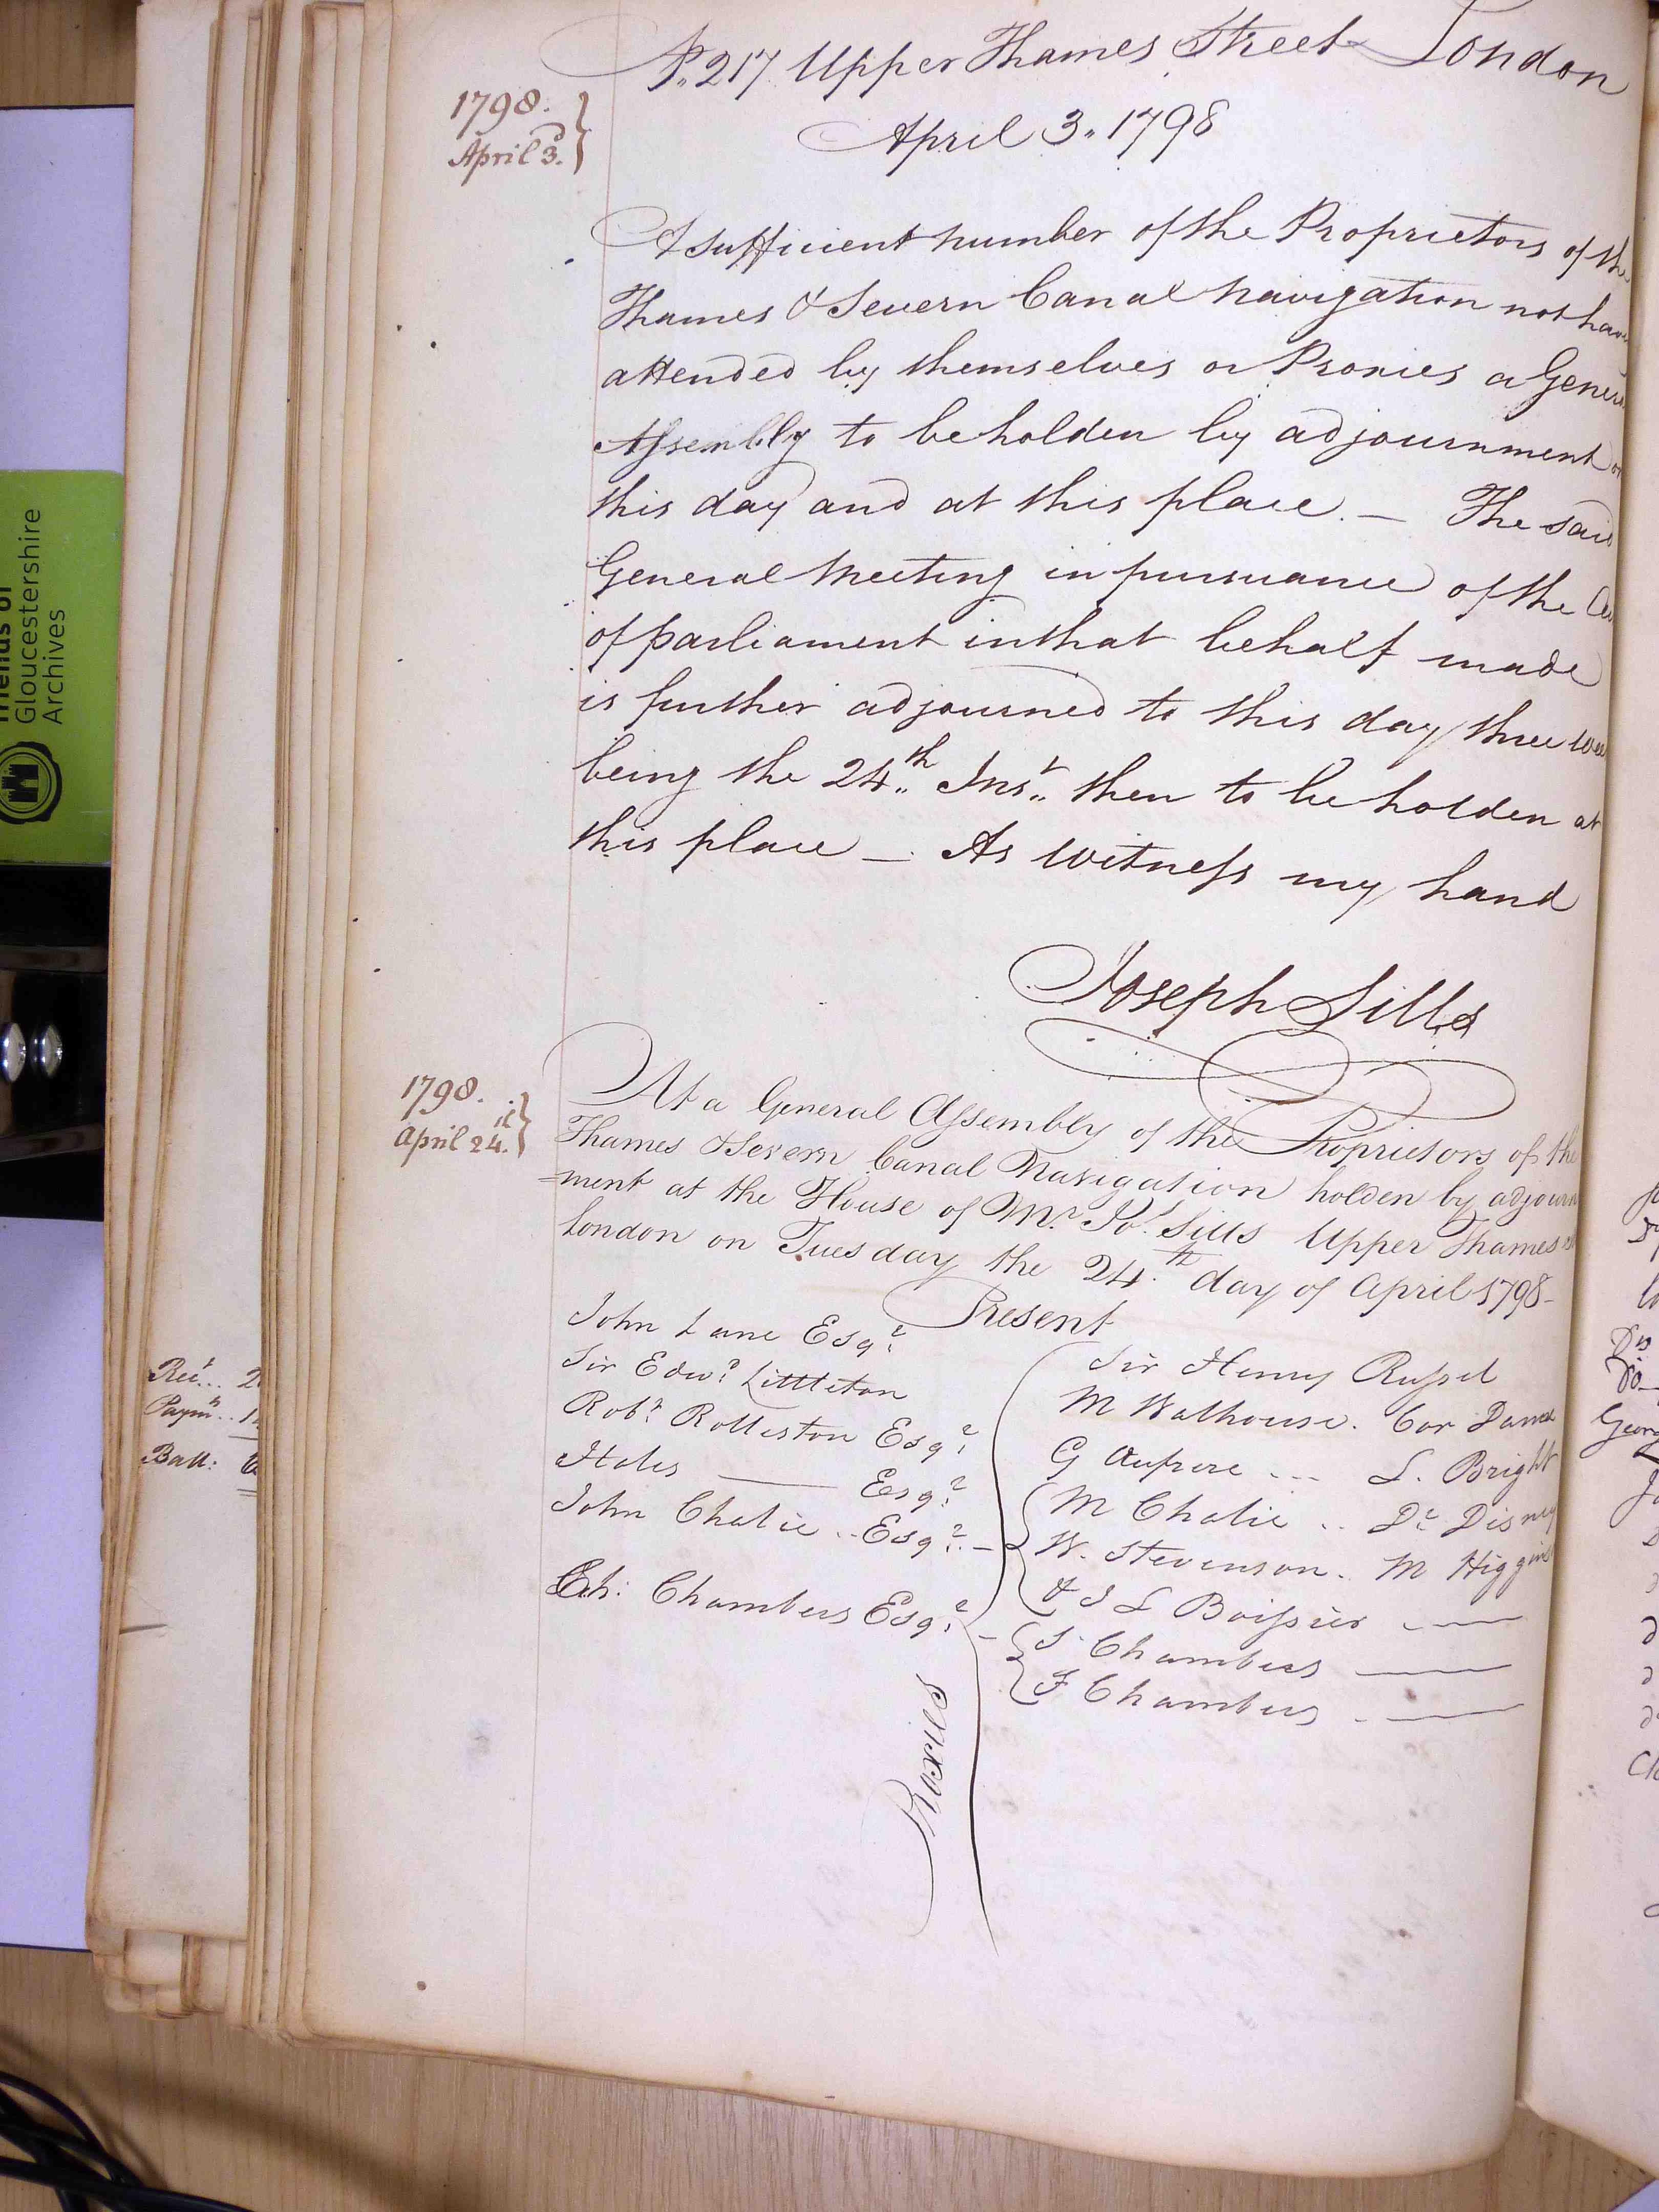 No. 217 Upper Thames Street London
1798.
April 3d.
April 3. 1798
A sufficient number of the Proprietors of the
Thames & Severn Canal Navigation not hav
attended by themselves or Proxies a Gener
Assembly to be holden by adjournment on
this day and at this place. — The said
General Meeting in pursuance of the
of parliament in that behalf made
is further adjourned to this day three wee
being the 24th Inst. then to be holden at
this place — As Witness my hand
Joseph Sills
1798.
April 24.th
At a General Assembly of the Proprietors of the
Thames & Severn Canal Navigation holden by adjourn
=ment at the House of Mr. Jos. Sills Upper Thames
London on Tuesday the 24.th day of April 1798-
Present
John Lane Esqr.
Sir Edwd. Littleton
Robt. Rolleston Esqr.
Hales — Esqr.
John Chalie .. Esqr. —
Ch: Chambers Esqr. —
Proxies
Sir Henry Russel
M Walhouse. Cor Dame
G Aufrere ... L. Bright
M Chalie .. Dr. Disney
W. Stevenson. M Higgins
& J L Boissier —
S Chambers —
F Chambers . —
Rect... 2
Paymt.. 1
Ball:
Friends of
Gloucestershire
Archives
Georg